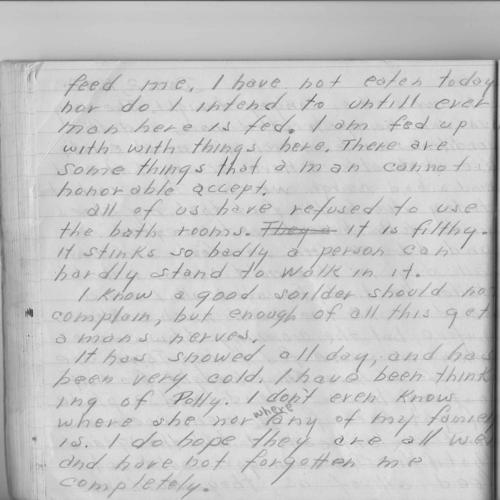 feed me. I have not eaten today
nor do I intend to untill ever
man here is fed. I am fed up
with with things here. There are
some things that a man cannot
honorable accept.
all of us have refused to use
the bath rooms. They a it is filthy.
It stinks so badly a person can
hardly stand to walk in it.
I know a good soilder should no
complain, but enough of all this get
a mans nerves.
It has snowed all day, and has
been very cold. I have been think
ing of Polly. I don't even know
where she nor where any of my family
is. I do hope they are all we
and have not forgotten me
completely.